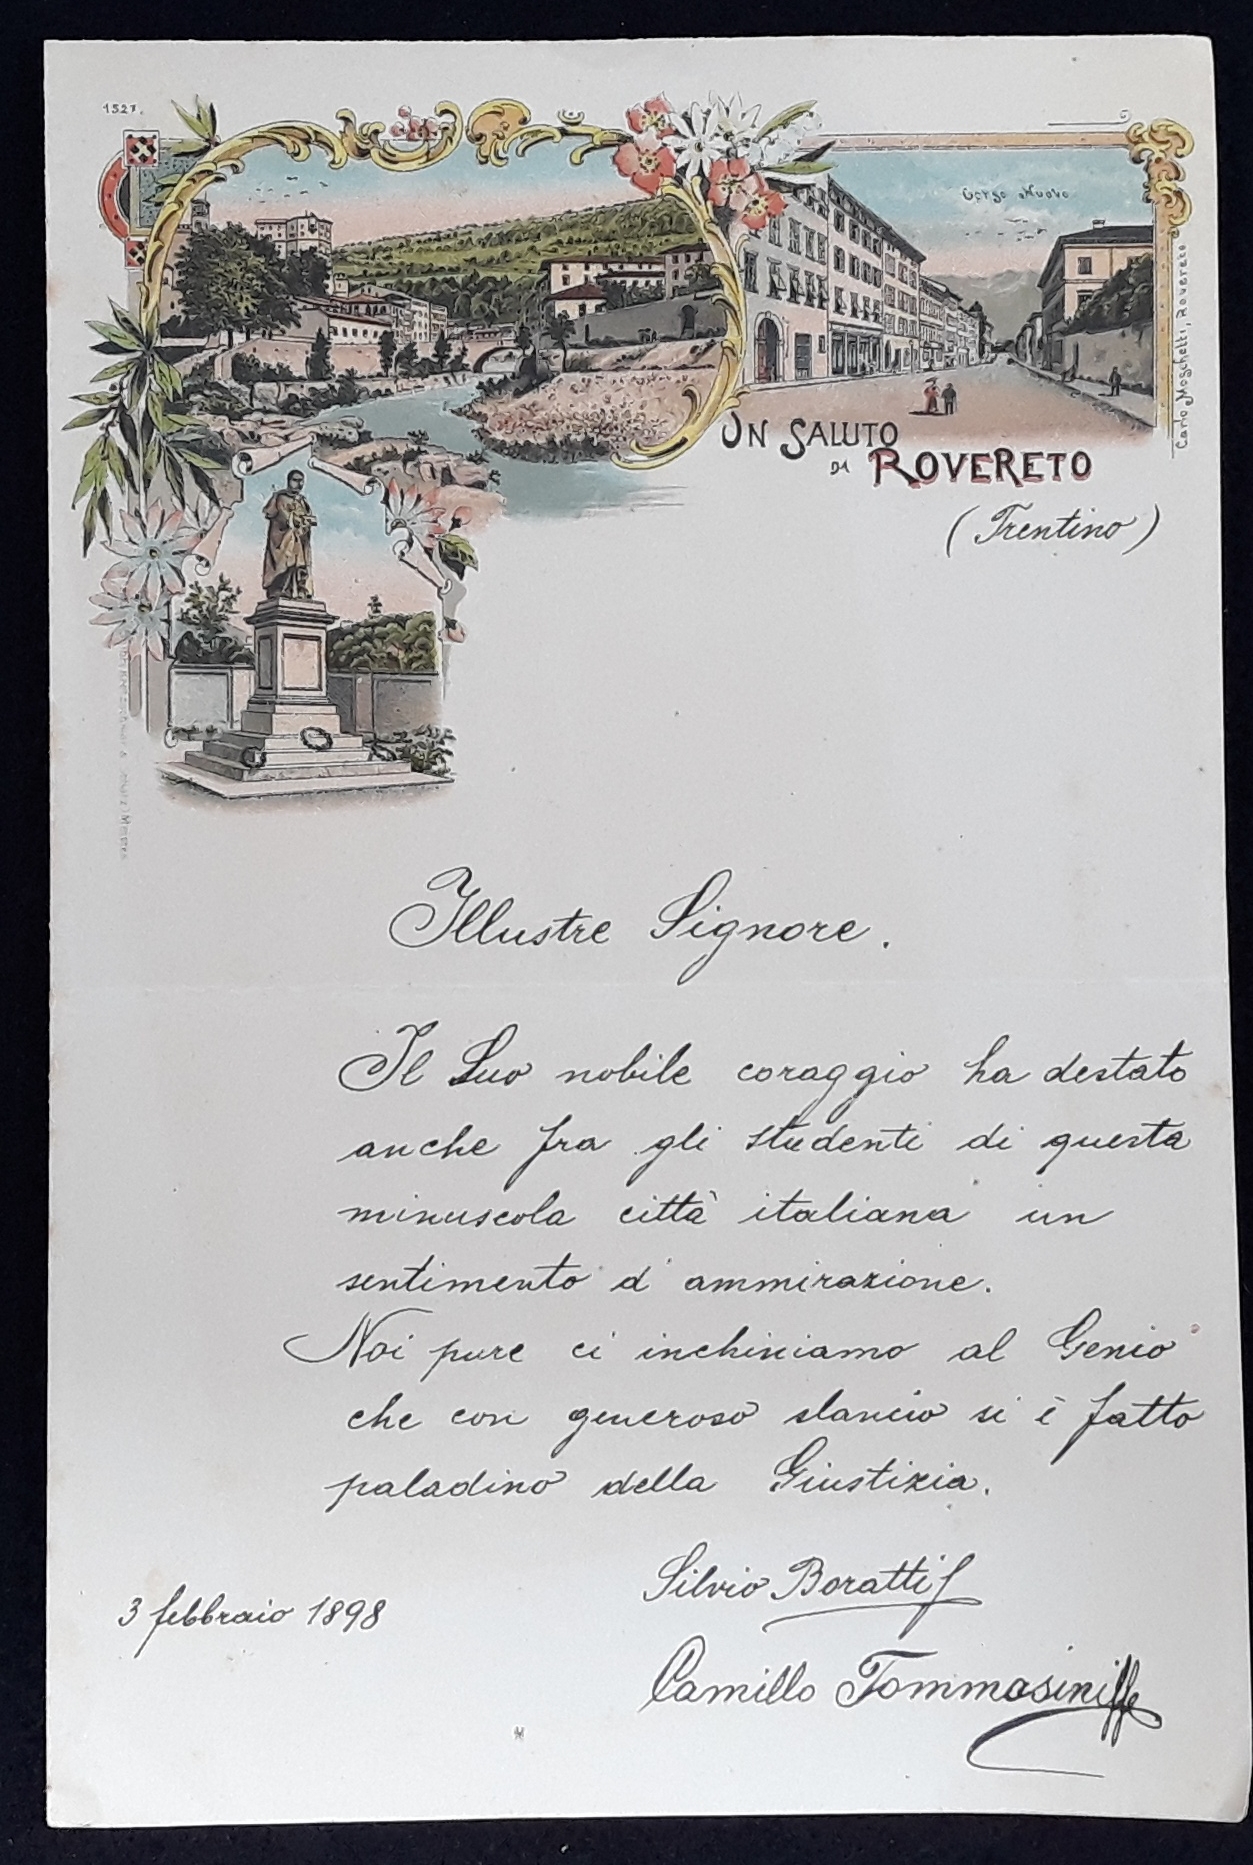 1527.
Corso Nuovo
Carlo Moschetti, Rovereto
Un Saluto
da Rovereto
(Trentino)
Illustre Signore.
Il Suo nobile coraggio ha destato
anche fra gli studenti di questa
minuscola città italiana un
sentimento d'ammirazione.
Noi pure ci inchiniamo al Genio
che con generoso slancio si è fatto
paladino della Giustizia.
Silvio Boratti
3 febbraio 1898
Camillo Tommasini